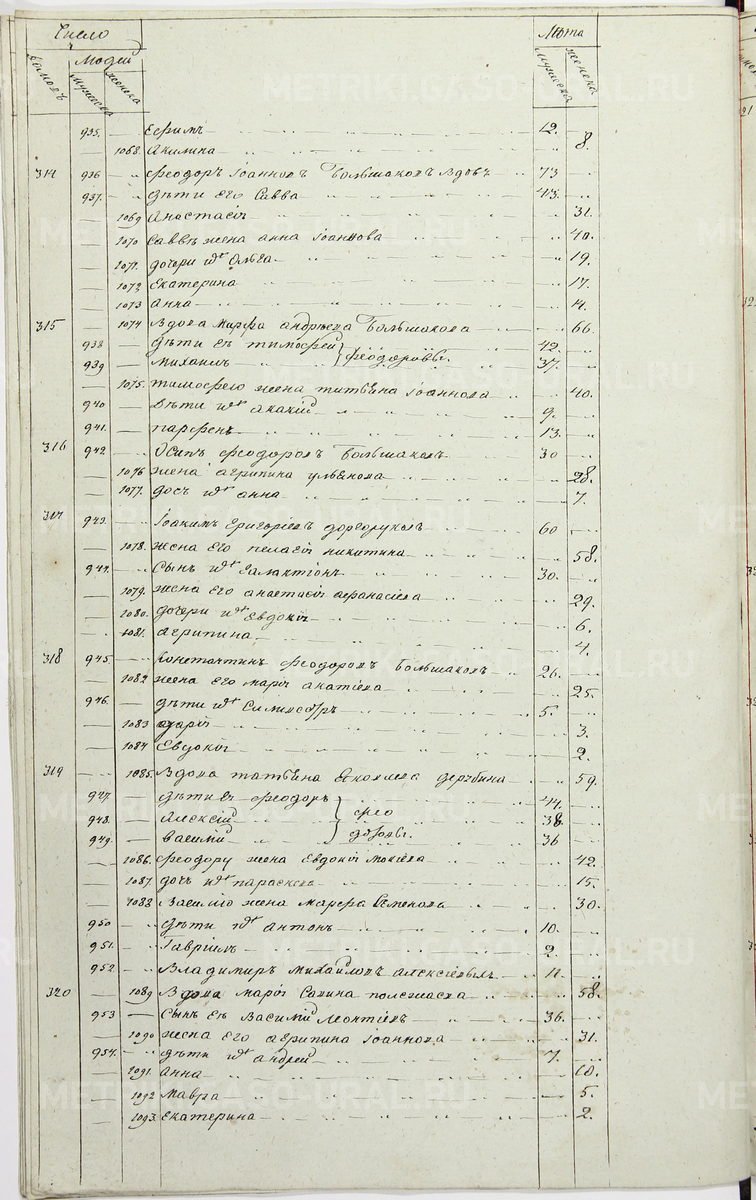 Число
Лѣта
Людей
домовъ
мужеска
женска
мужеска
женска
935. Ефимъ 12.
1068. Акилина 8.
314 936 Феодоръ Іоанновъ Большаковъ вдовъ 73
937. дѣти его Савва 43.
1069 Анастасія 31.
1070 Саввѣ жена анна Іоаннова 40.
1071. дочери ихъ Ольга 19.
1072 Екатерина 17.
1073 анна 4.
315 1074 вдова марфа андрѣева Большакова 66.
938 дѣти еѣ тимофей 42.
939 михаилъ Феодоровы. 37.
1075. тимофею жена татьяна Іоаннова 40.
940 Дѣти ихъ акакій 9.
941. парфенъ 13.
316 942 Осипъ феодоровъ Большаковъ 30
1076 жена агрипина ульянова 28.
1077. дочь ихъ анна 7.
317 943. Іоакимъ григоріевъ 60
1078. жена его пелагія никитина 58.
944. Сынъ ихъ Галактіонъ 30.
1079. жена его анастасія афанасіева 29.
1080. дочери ихъ Евдокія 6.
1081. агрипина 4.
318 945. Константинъ феодоровъ Большаковъ 26.
1082 жена его марія 25.
946. дѣти ихъ 5.
1083 дарія 3.
1084 Евдокія 2.
319 1085. Вдова татьяна 59.
947. дѣти еѣ феодоръ 44.
948. Алексій фео 38.
949. василій доровы. 36
1086. феодору жена Евдокія 42.
1087. дочь ихъ параскева 15.
1088 Василію жена марфа Семенова 30.
950 дѣти ихъ антонъ 10.
951. Гавріилъ 2.
952. Владимиръ михайловъ алексіевыхъ 11.
320 1089 Вдова марія Савина 58.
953 Сынъ еѣ Василій Леонтіевъ 36.
1090 жена его агрипина Іоаннова 31.
954. дѣти ихъ андрей 7.
1091. анна 10.
1092 мавра 5.
1093. Екатерина 2.